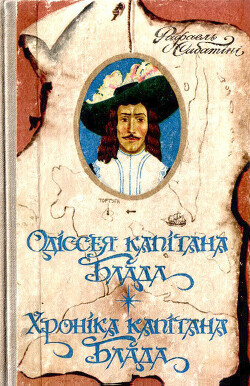 Рафаель
Сабатіні
ТОРТУГА
Одіссея капітана
Блада
Хроніка капітана
Блада